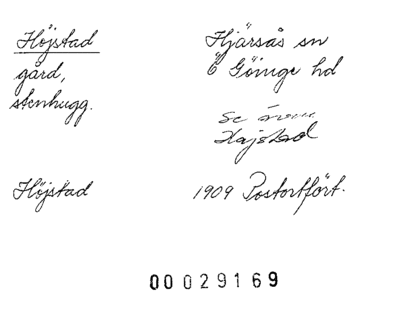 Höjstad
gård,
stenhugg.
Hjärsås sn
Ö Göinge hd
se även
Hajstad
Höjstad
1909 Postortsfört.
00029169